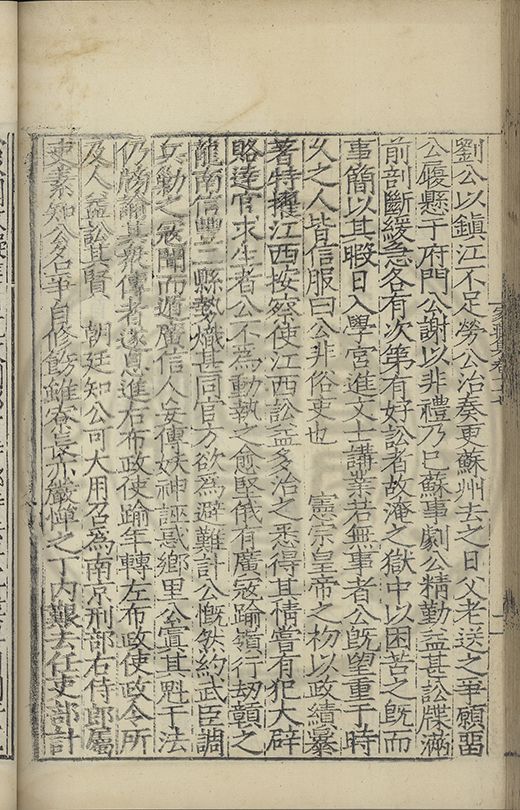 劉公以鎮江不足勞公治奏更蘇州去之日父老送之爭願留
公履懸于府門公謝以非禮乃已蘇事劇公精勤益甚訟牒滿
前剖斷緩急各有次第有好訟者故淹之獄中以困苦之既而
事簡以其暇日入學宮進文士講業若無事者公既望重于時
久之人皆信服曰公非俗吏也　憲宗皇帝之初以政績暴
著特擢江西按察使江西訟益多治之悉得其情嘗有犯大辟
賂達官求生者公不為動執之愈堅俄有廣冦踰嶺行刼贛之
龍南信豐二縣勢熾甚同官方欲為避難計公慨然約武臣調
兵勦之冦聞而遁廣信人妄傳妖神誣惑鄉里公寘其魁于法
仍牓諭其衆傳者遂息進右布政使踰年轉左布政使政令所
及人益訟其賢　朝廷知公可大用召為南京刑部右侍郎屬
吏素知公名爭自修飭雖寮長亦嚴憚之丁内艱去任吏部計